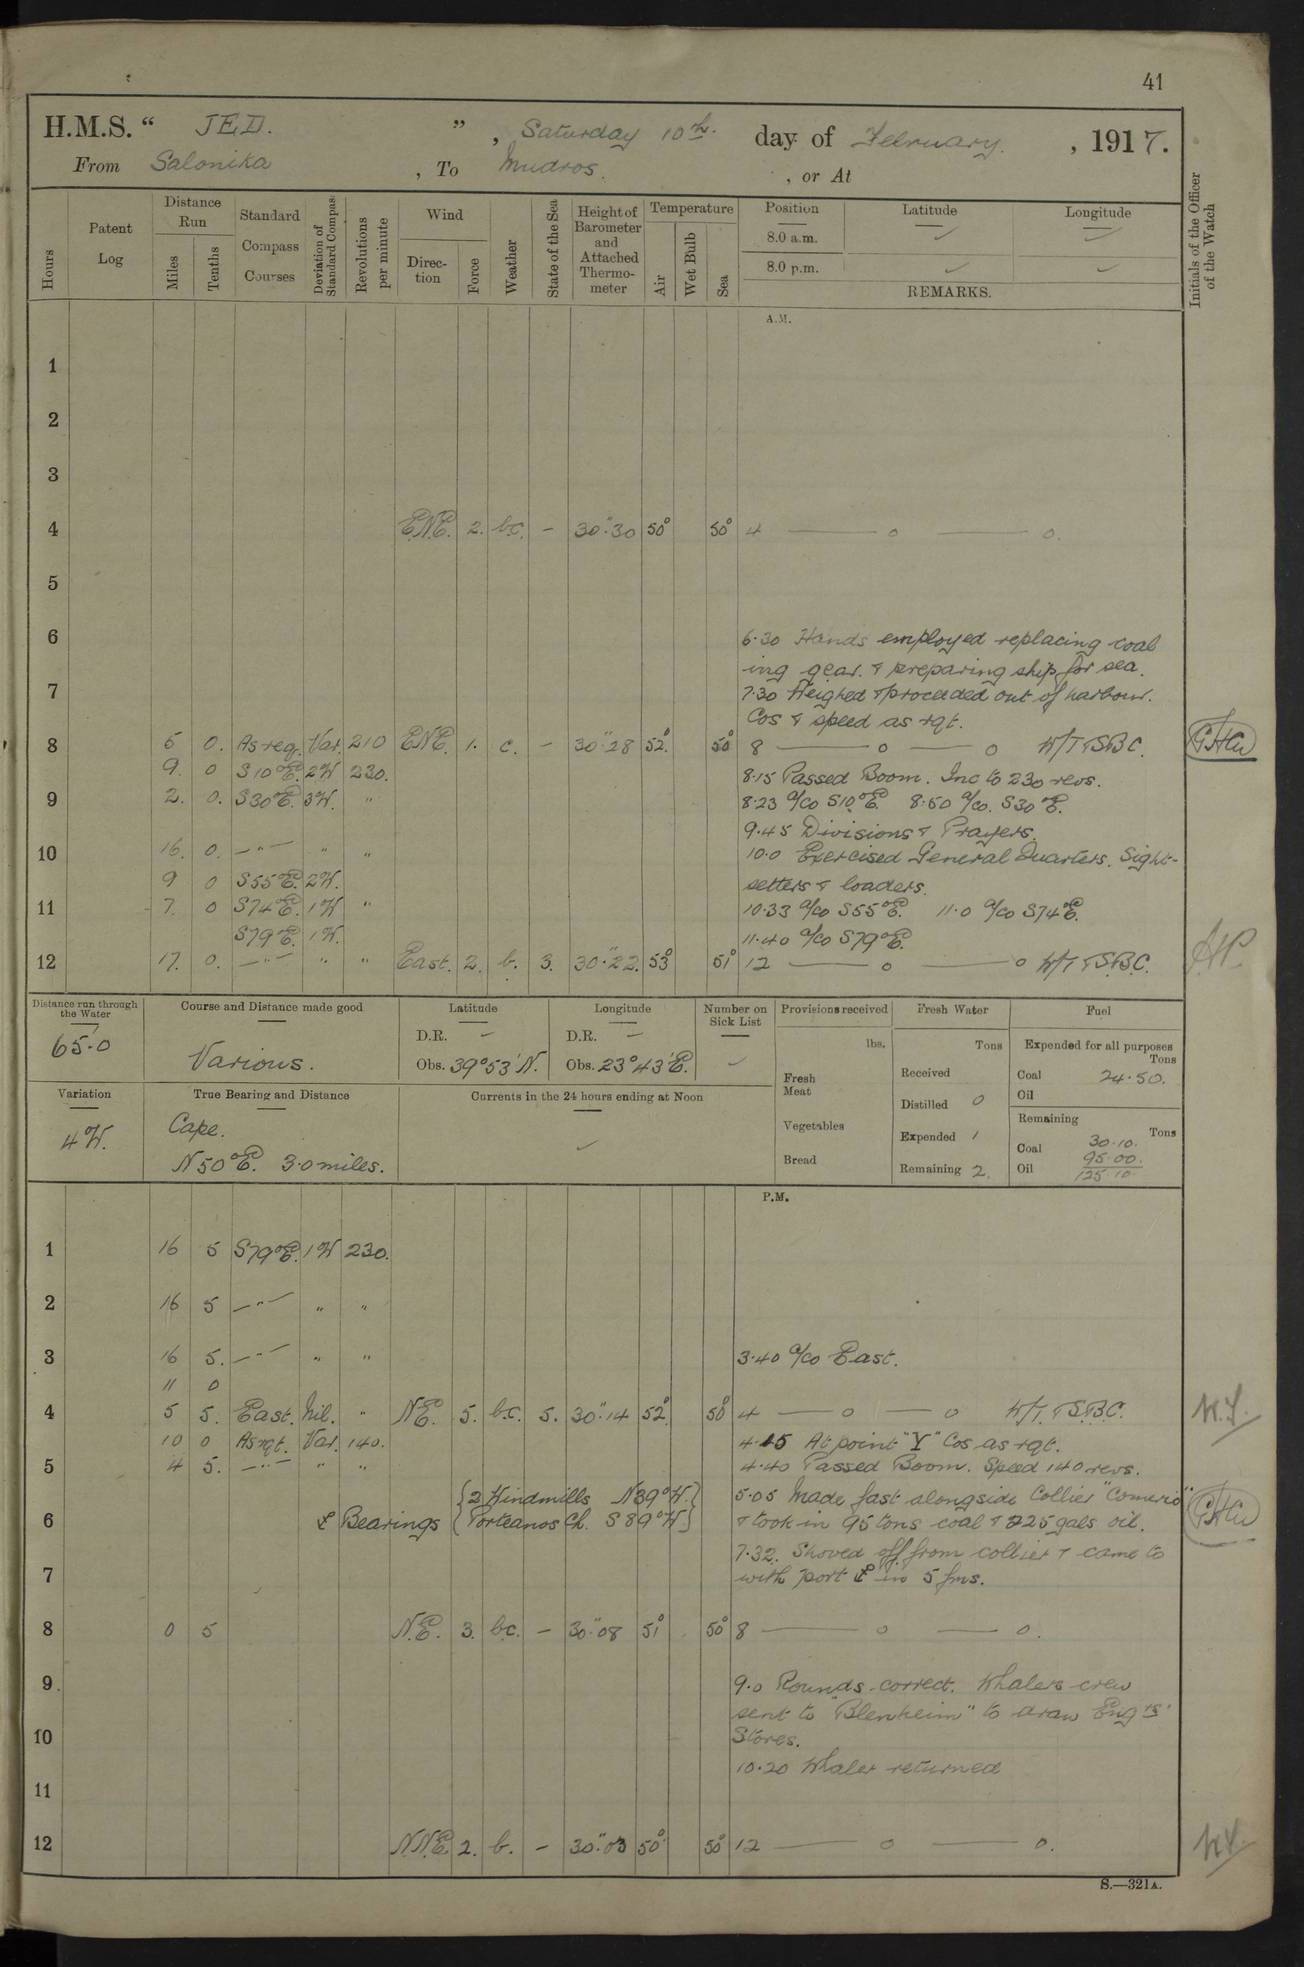 41
H.M.S. “ JED. ” , Saturday 10th. day of February. , 1917.
From Salonika , To Mudros. , or At
Hours
Patent Log
Distance Run
Miles
Tenths
Standard Compass Courses
Deviation of Standard Compass
Revolutions per minute
Wind
Direction
Force
Weather
State of the Sea
Height of Barometer and Attached Thermometer
Temperature
Air
Wet Bulb
Sea
Position Latitude Longitude
8.0 a.m. ✓ ✓
8.0 p.m. ✓ ✓
REMARKS.
Initials of the Officer of the Watch
A.M.
1
2
3
4 E.N.E. 2. b.c. – 30".30 50° 50° 4 — o — o.
5
6
6.30 Hands employed replacing coal
ing gear. & preparing ship for sea.
7
7.30 Weighed & proceeded out of harbour.
Cos & speed as rqt.
8 5 0. As req. Var. 210 ENE. 1. c. – 30".28 52°. 50° 8 — o — o W/T & S.B.C.
9. 0 S10°E. 2W. 230. 8.15 Passed Boom. Inc to 230 revs.
9 2. 0. S30°E. 3W. " 8.23 a/co S10°E. 8.50 a/co. S30°E.
9.45 Divisions & Prayers.
10 16. 0. —"— " " 10.0 Exercised General Quarters. Sight-
9 0 S55°E. 2W. setters & loaders.
11 7. 0 S74°E. 1W " 10.33 a/co S55°E. 11.0 a/co S74°E.
S79°E. 1W. 11.40 a/co S79°E.
12 17. 0. —"— " " East. 2. b. 3. 30".22. 53° 51° 12 — o — o W/T & S.B.C.
Distance run through the Water
65.0
Course and Distance made good
Various.
Latitude
D.R. –
Obs. 39°53'N.
Longitude
D.R. –
Obs. 23°43'E.
Number on Sick List
✓
Provisions received
lbs.
Fresh Meat
Vegetables
Bread
Fresh Water
Tons
Received
Distilled 0
Expended 1
Remaining 2.
Fuel
Expended for all purposes
Tons
Coal 24.50.
Oil
Remaining
Tons
Coal 30.10.
95.00.
Oil 125.10
Variation
4°W.
True Bearing and Distance
Cape.
N50°E. 3.0 miles.
Currents in the 24 hours ending at Noon
✓
P.M.
1 16 5 S79°E. 1W 230.
2 16 5 —"— " "
3 16 5. —"— " " 3.40 a/co East.
11 0
4 5 5. East. Nil. " NE. 5. b.c. 5. 30".14 52° 50° 4 — o — o W/T. & S.B.C.
10 0 As rqt. Var. 140. 4.15 At point "Y" Cos as rqt.
5 4 5. —"— " " 4.40 Passed Boom. Speed 140 revs.
{2 Windmills N39°W.} 5.05 Made fast alongside Collier
6 Bearings {Porteanos Ch. S89°W} & took in 95 tons coal & 225 gals oil.
7.32. Shoved off from collier & came to
7 with port ⚓ in 5 fms.
8 0 5 N.E. 3. b.c. – 30".08 51° 50° 8 — o — o.
9. 9.0 Rounds correct. Whalers crew
sent to "Blenheim" to draw Eng'rs'
10 Stores.
10.20 Whaler returned
11
12 NNE 2. b. – 30".03 50° 50° 12 — o — o.
S.—321A.